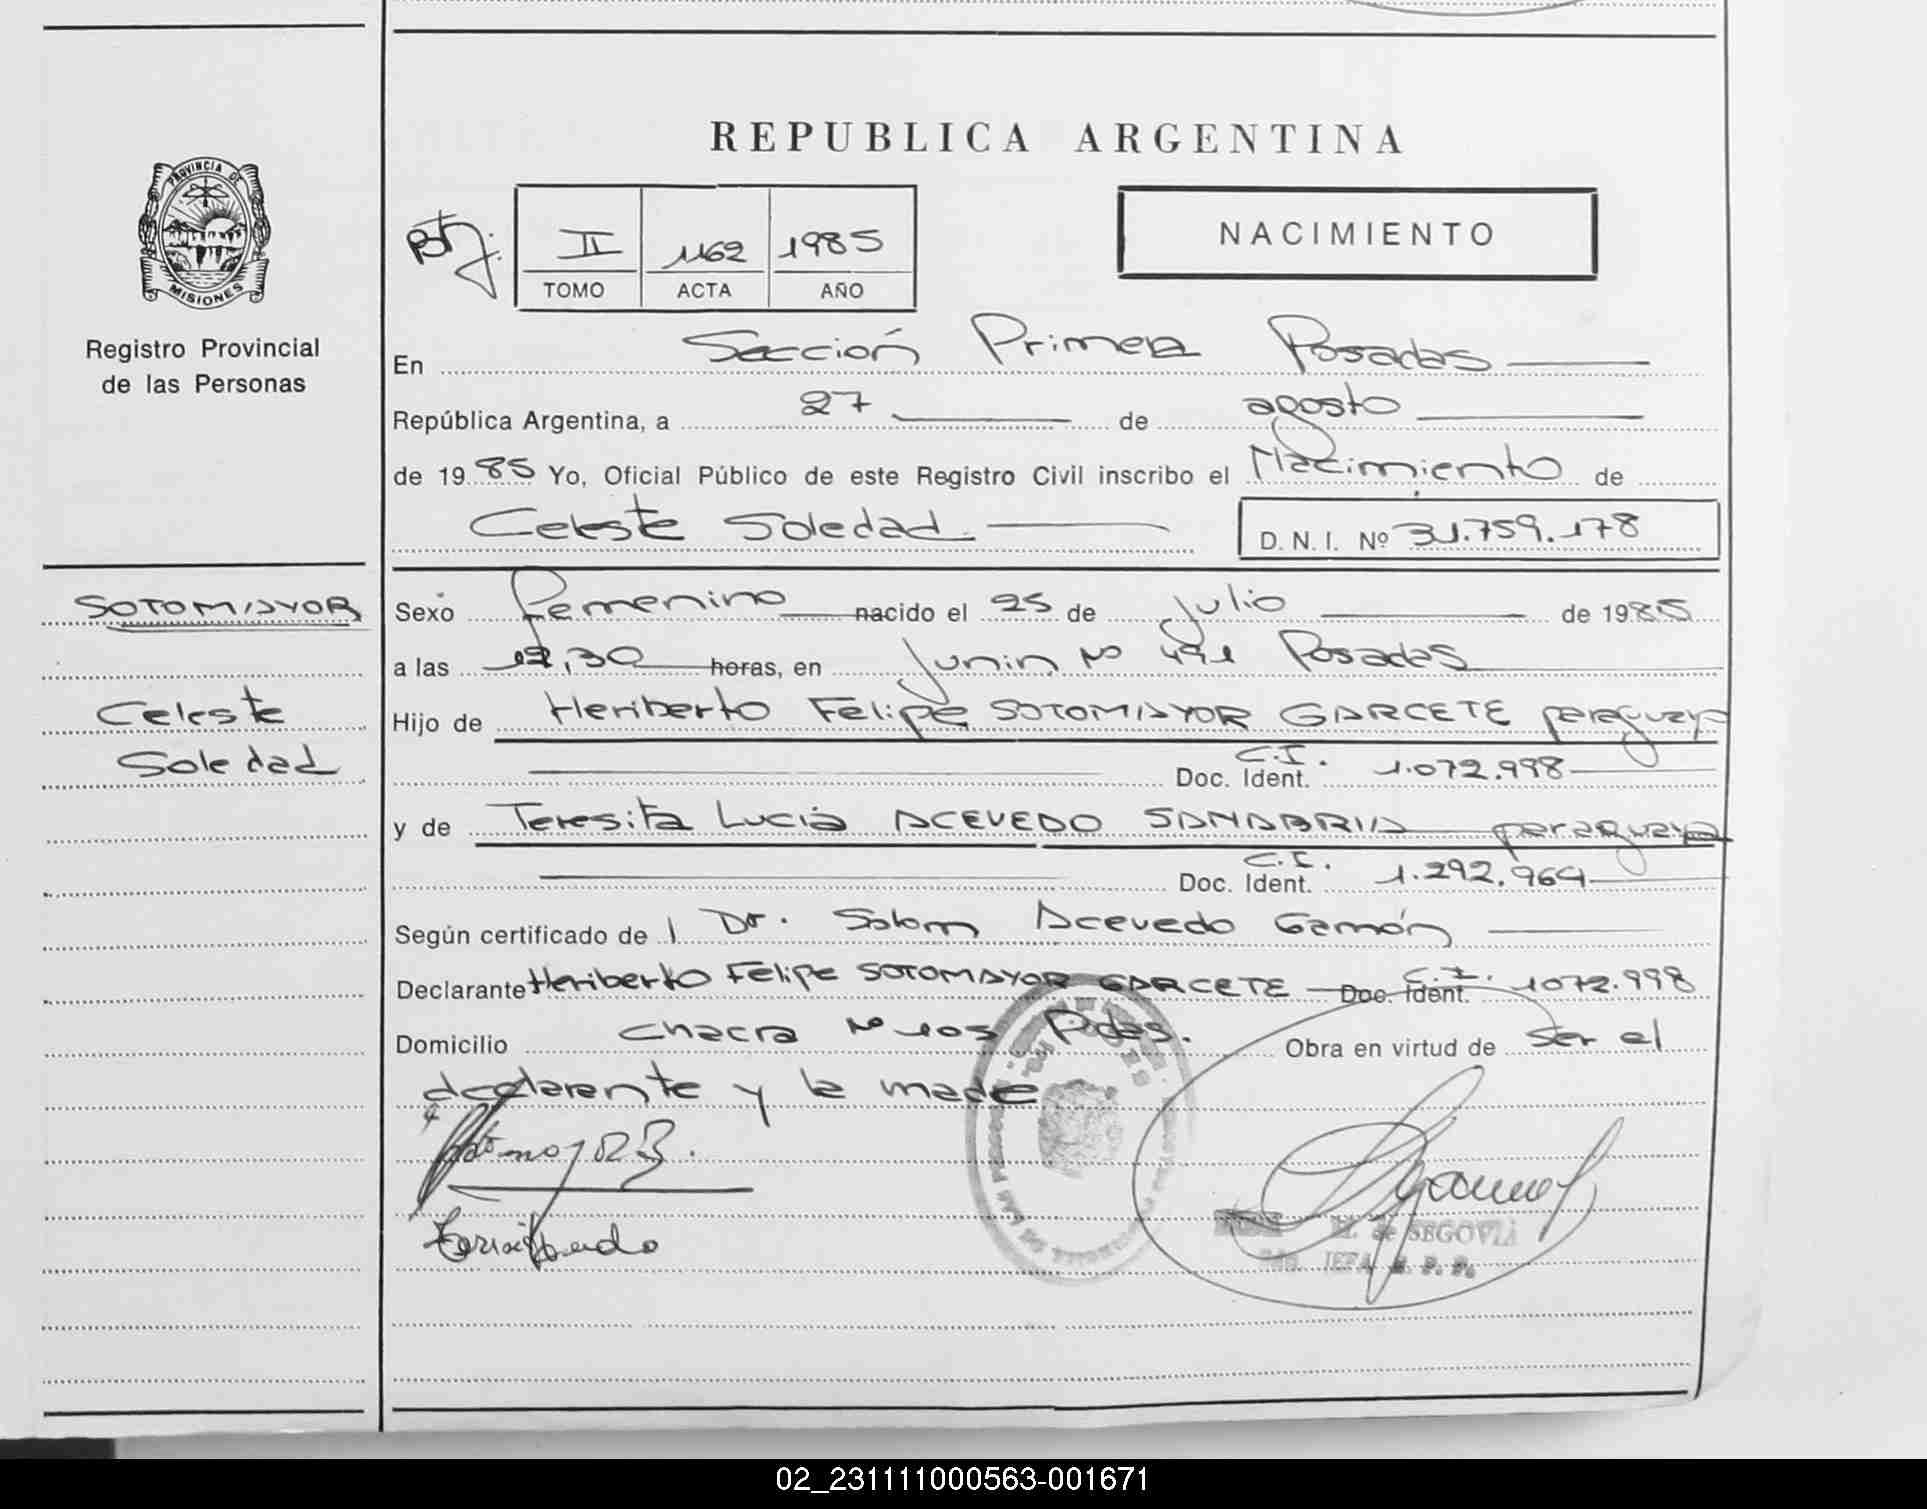 REPUBLICA ARGENTINA
PROVINCIA DE
MISIONES
Registro Provincial
de las Personas
II 1162 1985
TOMO ACTA AÑO
NACIMIENTO
En Sección Primera Posadas
República Argentina, a 27 de agosto
de 1985 Yo, Oficial Público de este Registro Civil inscribo el Nacimiento de
Celeste Soledad D. N. I. Nº 31.759.178
SOTOMAYOR
Celeste
Soledad
Sexo femenino nacido el 25 de julio de 1985
a las 12,30 horas, en Junin Nº 491 Posadas
Hijo de Heriberto Felipe SOTOMAYOR GARCETE paraguayo
C.I.
Doc. Ident. 1.072.998
y de Teresita Lucia ACEVEDO SANABRIA paraguaya
C.I.
Doc. Ident. 1.292.964
Según certificado de Dr. Acevedo Gamón
Declarante Heriberto Felipe SOTOMAYOR GARCETE Doc. Ident. C.I. 1072.998
Domicilio Chacra Nº 105 Pdas. Obra en virtud de ser el
declarante y la madre
de SEGOVIA
JEFA
02_231111000563-001671